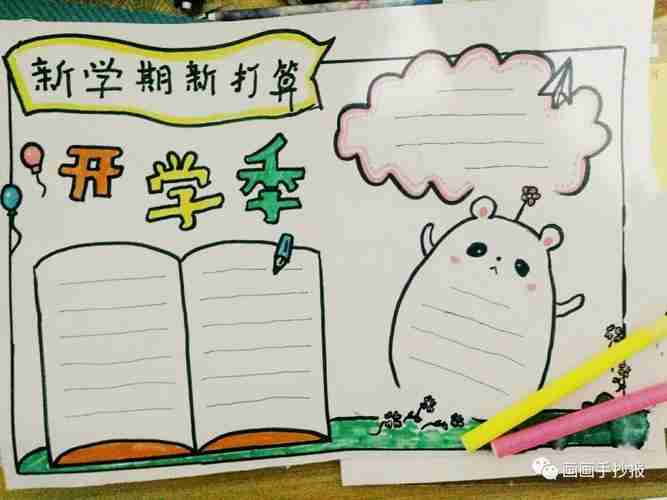 新学期新打算
开学季
画画手抄报